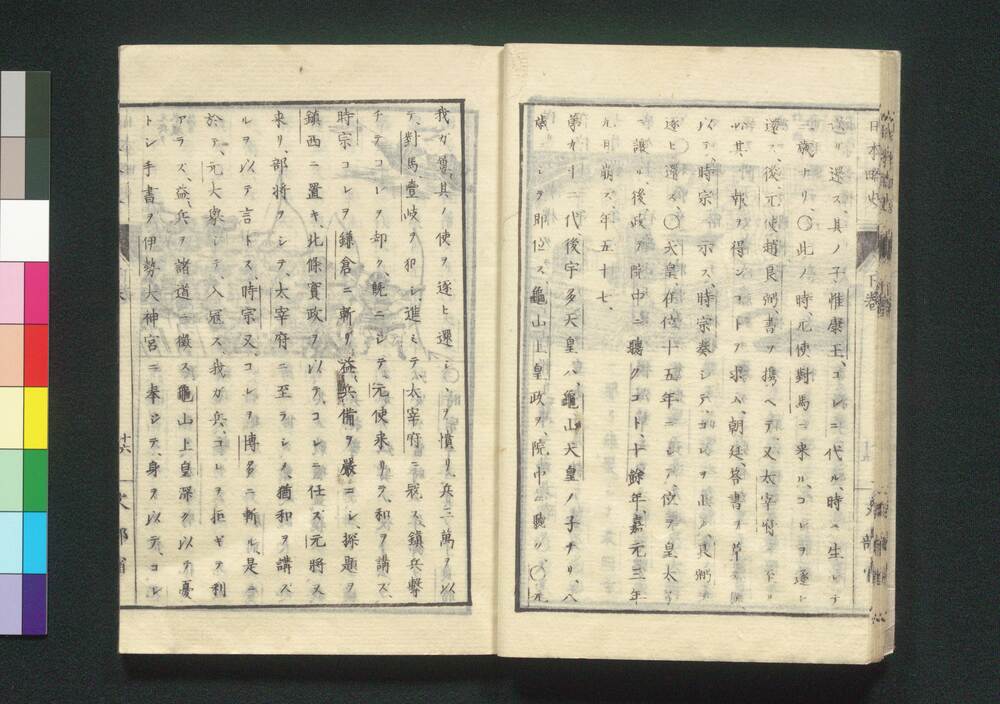 日本略史 下卷
還ス、其ノ子惟康王、コレニ代ル時ニ生レテ
三歳ナリ〇此ノ時、元使對馬ニ來ル、コレヲ逐ヒ
還ス、後、元使趙良弼、書ヲ携ヘテ、又太宰府ニ
其ノ報ヲ得ンコトヲ求ム、朝廷答書ヲ草シ
以テ、時宗ニ示ス、時宗奏シテ、コレヲ止メ、良弼ヲ
逐ヒ還ス、〇天皇在位十五年ニシテ、位ヲ皇太子
ニ讓リ、後政ヲ院中ニ聽クコト、十餘年、嘉元三年
九月崩ス、年五十七、
第九十二代後宇多天皇ハ、龜山天皇ノ子ナリ、八
歳ニシテ即位ス、龜山上皇政ヲ、院中ニ聽ク、〇元
我ガ屢、其ノ使ヲ逐ヒ還シヽヲ憤リ、兵三萬ヲ以
テ、對馬、壹岐ヲ犯シ、進ミテ、太宰府ニ寇ス、鎮兵撃
チテコレヲ却ク、既ニシテ、元使來リテ、和ヲ講ズ、
時宗コレヲ鎌倉ニ斬リ、益、兵備ヲ嚴ニシ、探題ヲ
鎮西ニ置キ、北條實政ヲ以テ、コレニ任ズ、元將又
來リ、部將ヲシテ、太宰府ニ至ラシメ、猶和ヲ講ズ
ルヲ以テ言トス、時宗又、コレヲ博多ニ斬ル、是ニ
於テ、元大擧シテ、入寇ス、我ガ兵、コレヲ拒ギテ利
アラズ、益、兵ヲ諸道ニ徴ス、龜山上皇深ク以テ憂
トシ手書ヲ伊勢大神宮ニ奉ジテ、身ヲ以テ、コレ
廿六
文部省